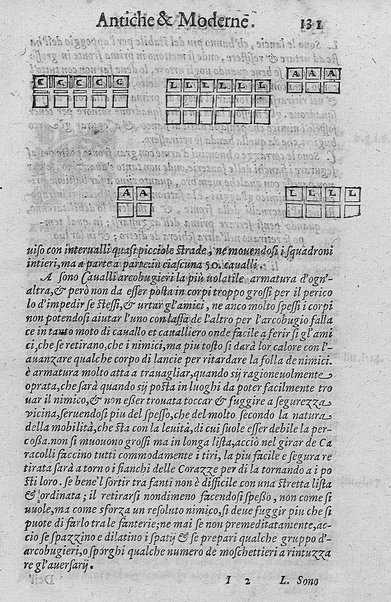 Antiche & Moderne. 131
A A A
C C C C C
L L L L L L
A A
L L L L
uiso con interualli quasi picciole strade, ne mouendosi i squadroni
intieri, ma a parte a parte in ciascuna 50. caualli.
A sono Caualli arcobugieri la più uolatile armatura d'ogn'
altra, & però non da esser posta in corpi troppo grossi per il perico
lo d'impedir se stessi, & urtar gl'amici, ne anco molto spessi i corpi
non potendosi aiutar l'uno con lasse de l'altro per l'arcobugio falla
ce in tanto moto di cauallo et caualliero onde facile a ferir si gl'ami
ci, che se retirano, che i nimici, ma piu tosto si darà lor calore con l'
auanzare qualche corpo di lancie per ritardare la folla de nimici.
è armatura molto atta a trauagliar, quando sij ragioneuolmente
oprata, che sarà quando sij posta in luoghi da poter facilmente tro
uar il nimico, & non eßer trouata toccar & fuggire a segurezza
vicina, seruendosi piu del spesso, che del molto secondo la natura
della mobilità, che stà con la leuità, di cui suole esser debile la per-
coßa. non si muouono grossi ma in longa lista, acciò nel girar de Ca
racolli faccino tutti commodamente i tiri, la piu facile e segura re
tirata sarà a torno i fianchi delle Corazze per di la tornando a i po
sti loro. se bene'l sortir tra fanti non è difficile con una stretta lista
& ordinata; il retirarsi nondimeno facendosi speßo, non come si
uuole, ma come sforza un resoluto nimico, si deue fuggir piu che si
puote di farlo tra le fanterie; ne mai se non premeditatamente, ac-
cio se spazzino e dilatino i spatij & se prepari qualche gruppo d'
arcobugieri, o sporghi qualche numero de moschettieri a rintuzza
re gl'auersarij.
I 2 L. Sono